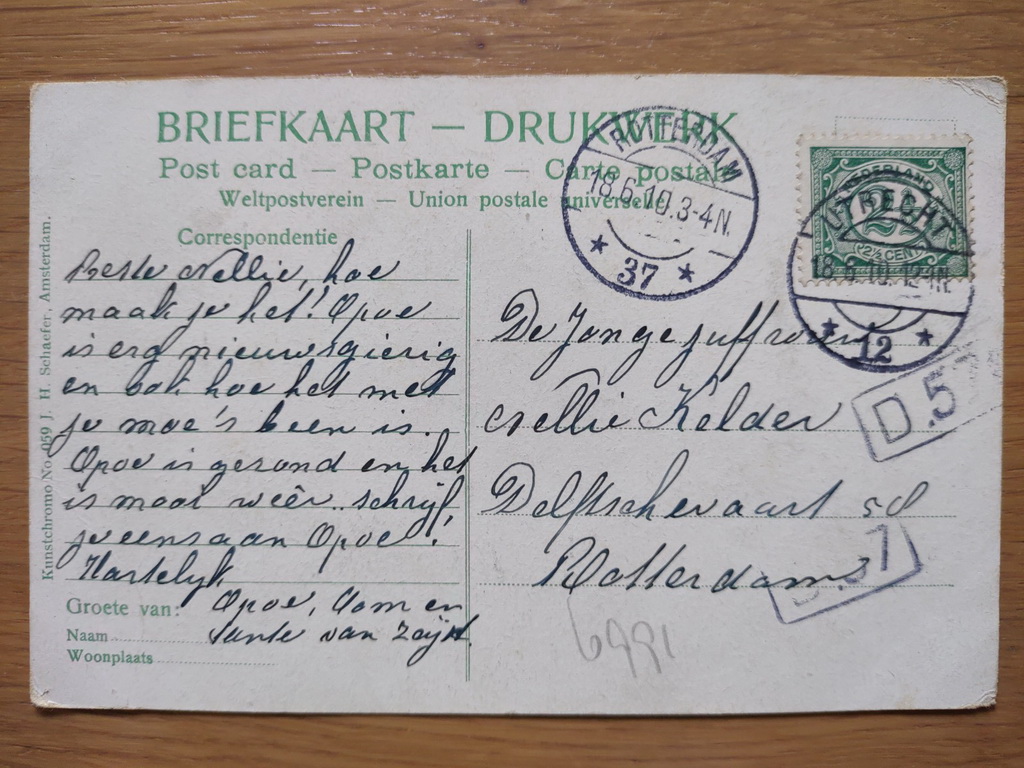 BRIEFKAART — DRUKWERK
Post card — Postkarte — Carte postale
Weltpostverein — Union postale universelle
Correspondentie
Beste Nellie, hoe
maak je het! Opoe
is erg nieuwsgierig
en ook hoe het met
je moe's been is.
Opoe is gezond en het
is mooi weêr. schrijf
je eens aan Opoe!
Hartelijk
Groete van: Opoe, Oom en
Naam Tante van Zeijst.
Woonplaats
Kunstchromo No. 059 J. H. Schaefer, Amsterdam.
ROTTERDAM
18.6.10. 3-4N.
37
NEDERLAND
2½
2½ CENT
UTRECHT
18.6.10. 12-1N.
12
De Jongejuffrouw
Nellie Kelder
Delftschevaart 50
Rotterdam
D.5
6991